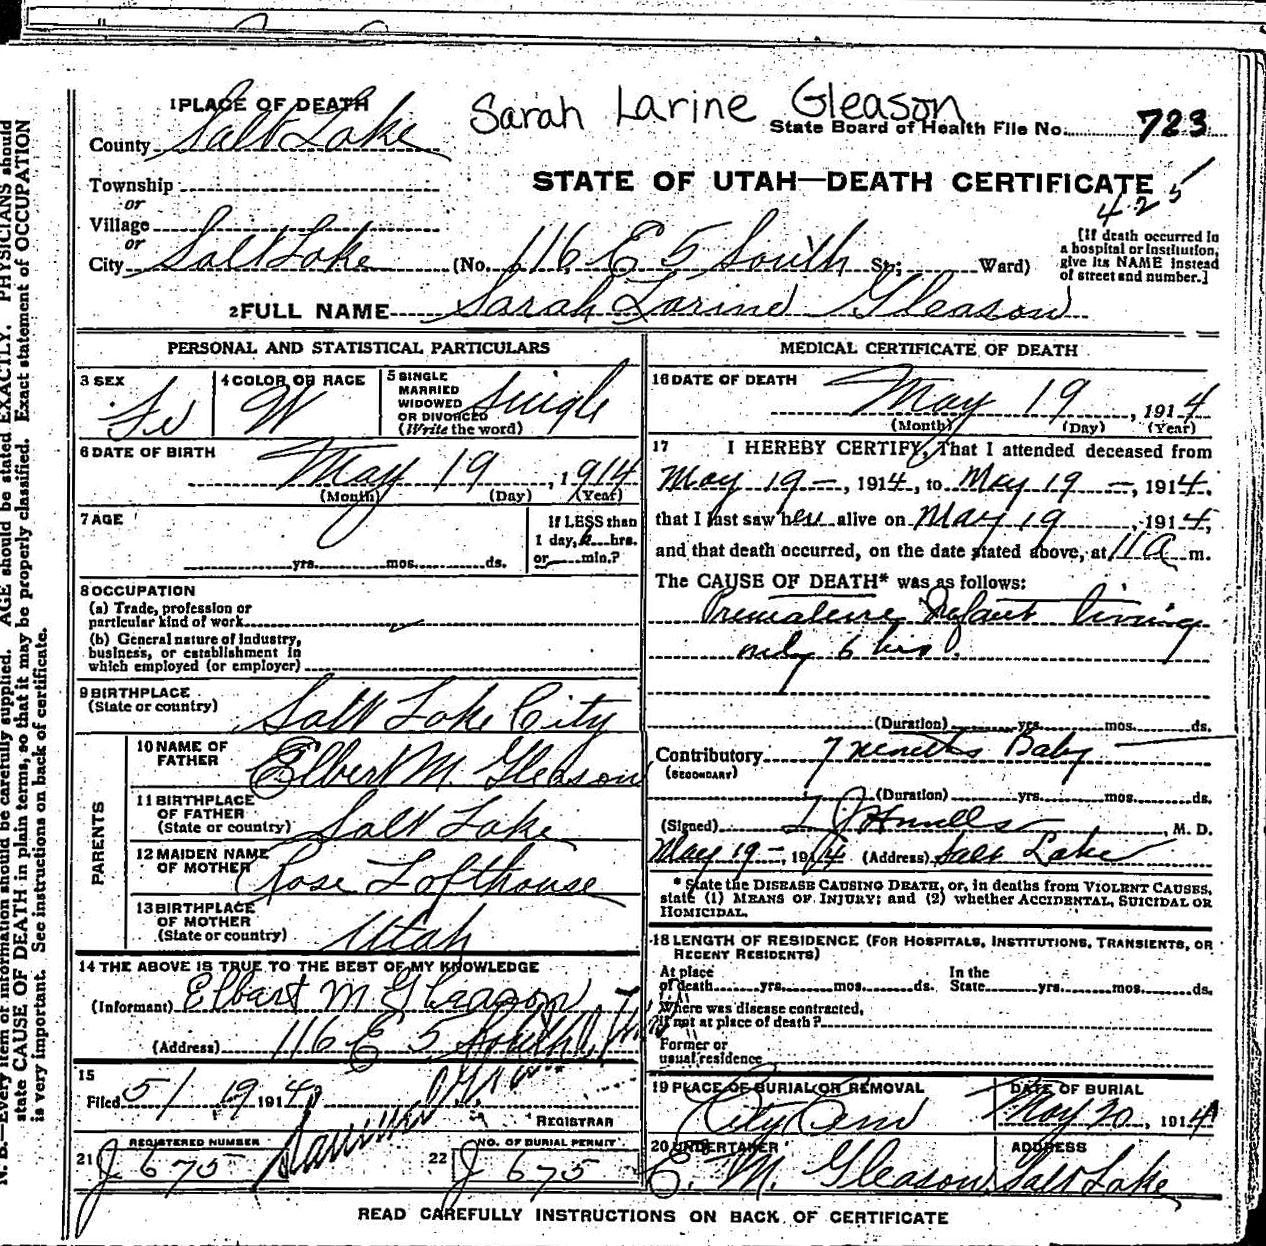 Sarah Larine Gleason
1 PLACE OF DEATH
State Board of Health File No. 723
County Salt Lake
STATE OF UTAH—DEATH CERTIFICATE
425
Township
or
Village
or
City Salt Lake (No. 116 E 5 South St; Ward)
[If death occurred in
a hospital or institution,
give its NAME instead
of street and number.]
2 FULL NAME Sarah Larine Gleason
PERSONAL AND STATISTICAL PARTICULARS
3 SEX Fe
4 COLOR OR RACE W
5 SINGLE
MARRIED
WIDOWED
OR DIVORCED
(Write the word) single
6 DATE OF BIRTH May 19, 1914
(Month) (Day) (Year)
7 AGE
yrs. mos. ds.
If LESS than
1 day, 6 hrs.
or min.?
8 OCCUPATION
(a) Trade, profession or
particular kind of work
(b) General nature of Industry,
business, or establishment in
which employed (or employer)
9 BIRTHPLACE
(State or country) Salt Lake City
PARENTS
10 NAME OF
FATHER Elbert M. Gleason
11 BIRTHPLACE
OF FATHER
(State or country) Salt Lake
12 MAIDEN NAME
OF MOTHER Rose Lofthouse
13 BIRTHPLACE
OF MOTHER
(State or country) Utah
14 THE ABOVE IS TRUE TO THE BEST OF MY KNOWLEDGE
(Informant) Elbart M Gleason
(Address) 116 E 5 South
15
Filed 5/19 1914
REGISTRAR
REGISTERED NUMBER
21 J 675
NO. OF BURIAL PERMIT
22 J 675
MEDICAL CERTIFICATE OF DEATH
16 DATE OF DEATH May 19, 1914
(Month) (Day) (Year)
17 I HEREBY CERTIFY, That I attended deceased from
May 19 -, 1914, to May 19 -, 1914,
that I last saw her alive on May 19, 1914,
and that death occurred, on the date stated above, at 11 a m.
The CAUSE OF DEATH* was as follows:
Premature Infant living
only 6 hrs.
(Duration) yrs. mos. ds.
Contributory 7 months Baby
(SECONDARY)
(Duration) yrs. mos. ds.
(Signed) , M. D.
May 19-, 1914 (Address) Salt Lake
* State the DISEASE CAUSING DEATH, or, in deaths from VIOLENT CAUSES,
state (1) MEANS OF INJURY; and (2) whether ACCIDENTAL, SUICIDAL OR
HOMICIDAL.
18 LENGTH OF RESIDENCE (FOR HOSPITALS, INSTITUTIONS, TRANSIENTS, OR
RECENT RESIDENTS)
At place
of death yrs. mos. ds.
In the
State yrs. mos. ds.
Where was disease contracted,
if not at place of death?
Former or
usual residence
19 PLACE OF BURIAL OR REMOVAL
City Cem
DATE OF BURIAL
May 20, 1914
20 UNDERTAKER
E. M. Gleason
ADDRESS
Salt Lake
READ CAREFULLY INSTRUCTIONS ON BACK OF CERTIFICATE
N. B.—Every item of information should be carefully supplied. AGE should be stated EXACTLY. PHYSICIANS should
state CAUSE OF DEATH in plain terms, so that it may be properly classified. Exact statement of OCCUPATION
is very important. See instructions on back of certificate.